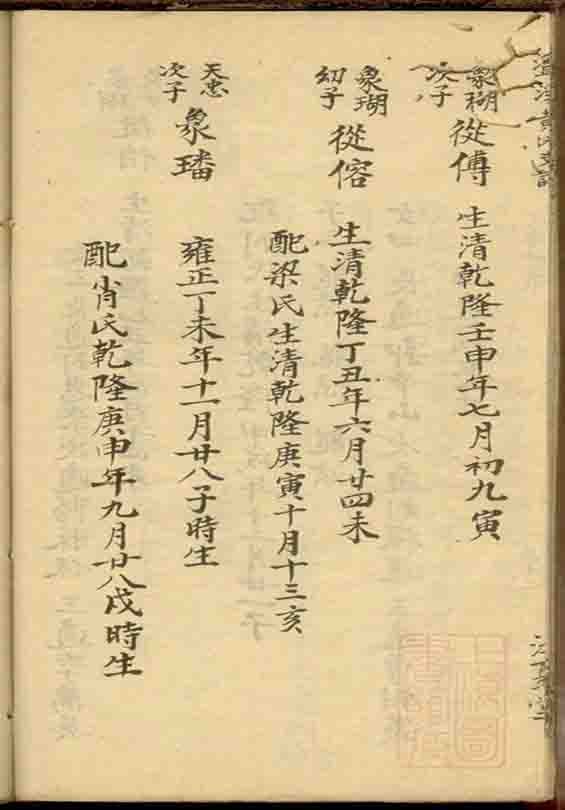 象瑚
次子
從傅
生清乾隆壬申年七月初九寅
象瑚
幼子
從榕
生清乾隆丁丑年六月廿四未
配梁氏生清乾隆庚寅十月十三亥
天忠
次子
象璠
雍正丁未年十一月廿八子時生
配肖氏乾隆庚申年九月廿八戌時生